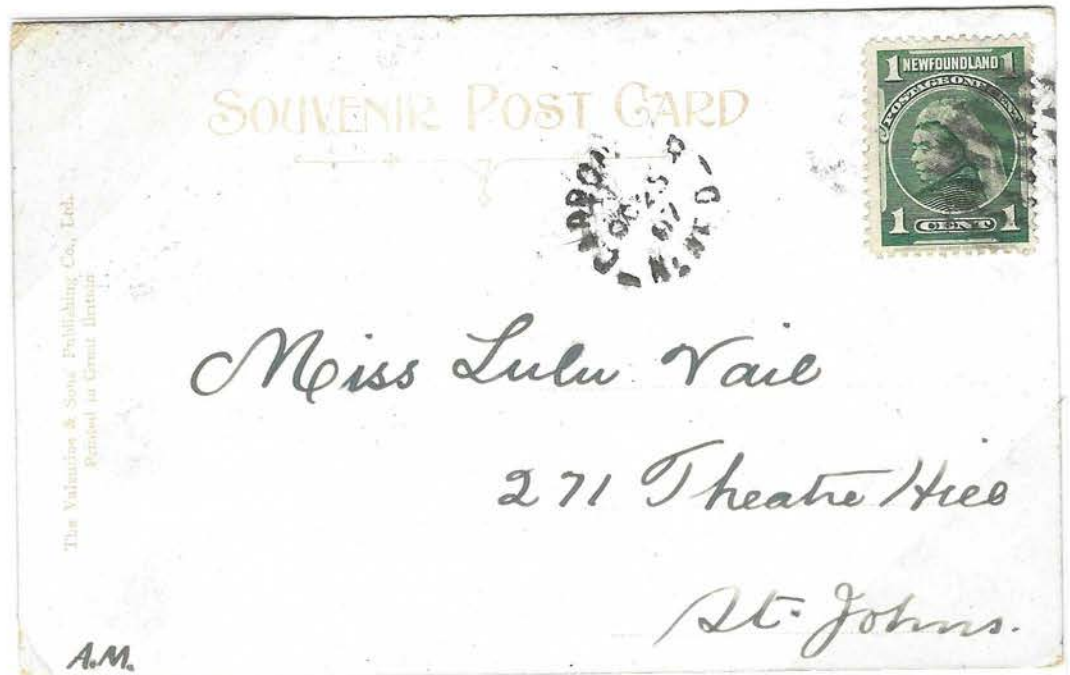 SOUVENIR POST CARD
1 NEWFOUNDLAND 1
POSTAGE ONE CENT
1 CENT 1
OC 25
07
The Valentine & Sons' Publishing Co., Ltd.
Printed in Great Britain
Miss Lulu Vail
271 Theatre Hill
St. Johns.
A.M.